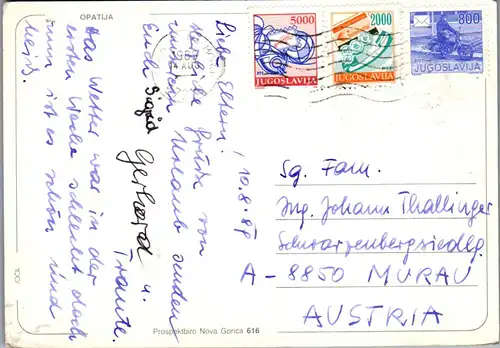 OPATIJA
10.8.89
Liebe Eltern!
Herzliche Grüße von
unserem Urlaub senden
Euch Sigrid Gerhard u.
Traute.
Das Wetter war in der
ersten Woche schlecht doch
nun ist es schön und
heiß.
5000
JUGOSLAVIJA
2000
JUGOSLAVIJA
800
JUGOSLAVIJA
Sg. Fam.
Ing. Johann Thallinger
Schwarzenbergsiedlg.
A-8850 MURAU
AUSTRIA
Prospektbiro Nova Gorica 616